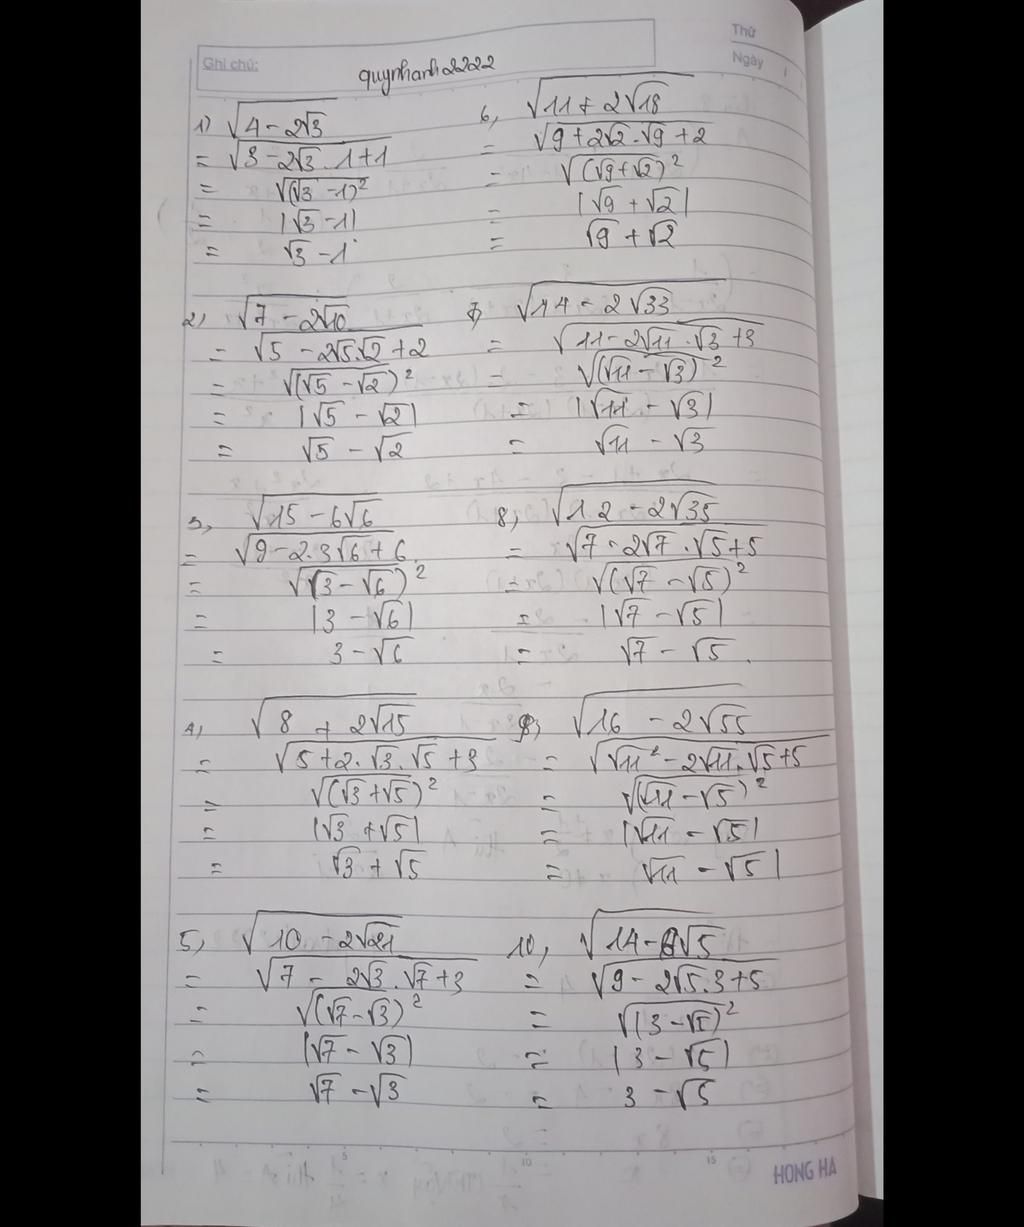 Thứ
Ghi chú:
Ngày
quynhanh2222
1) √(4 - 2√3)
= √(3 - 2√3 . 1 + 1)
= √((√3 - 1)²)
= |√3 - 1|
= √3 - 1
6, √(11 + 2√18)
= √(9 + 2√2 . √9 + 2)
= √((√9 + √2)²)
= |√9 + √2|
= √9 + √2
2, √(7 - 2√10)
= √(5 - 2√5.√2 + 2)
= √((√5 - √2)²)
= |√5 - √2|
= √5 - √2
7, √(14 - 2√33)
= √(11 - 2√11 . √3 + 3)
= √((√11 - √3)²)
= |√11 - √3|
= √11 - √3
3, √(15 - 6√6)
= √(9 - 2.3√6 + 6)
= √((3 - √6)²)
= |3 - √6|
= 3 - √6
8, √(12 - 2√35)
= √(7 - 2√7 . √5 + 5)
= √((√7 - √5)²)
= |√7 - √5|
= √7 - √5.
4, √(8 + 2√15)
= √(5 + 2.√3.√5 + 3)
= √((√3 + √5)²)
= |√3 + √5|
= √3 + √5
9, √(16 - 2√55)
= √(√11² - 2√11.√5 + 5)
= √((√11 - √5)²)
= |√11 - √5|
= √11 - √5|
5, √(10 - 2√21)
= √(7 - 2√3.√7 + 3)
= √((√7 - √3)²)
= |√7 - √3|
= √7 - √3
10, √(14 - 6√5)
= √(9 - 2√5.3 + 5)
= √((3 - √5)²)
= |3 - √5|
= 3 - √5
5 10 15
HONG HA